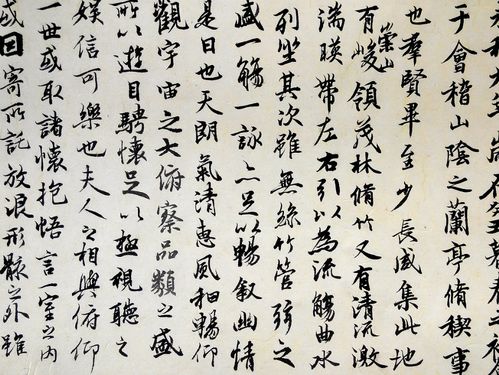 年歲在癸丑暮春之初
于會稽山陰之蘭亭脩稧事
也羣賢畢至少長咸集此地
有崇山峻領茂林脩竹又有清流激
湍暎帶左右引以為流觴曲水
列坐其次雖無絲竹管弦之
盛一觴一詠亦足以暢敘幽情
是日也天朗氣清惠風和暢仰
觀宇宙之大俯察品類之盛
所以遊目騁懷足以極視聽之
娛信可樂也夫人之相與俯仰
一世或取諸懷抱悟言一室之內
或因寄所託放浪形骸之外雖